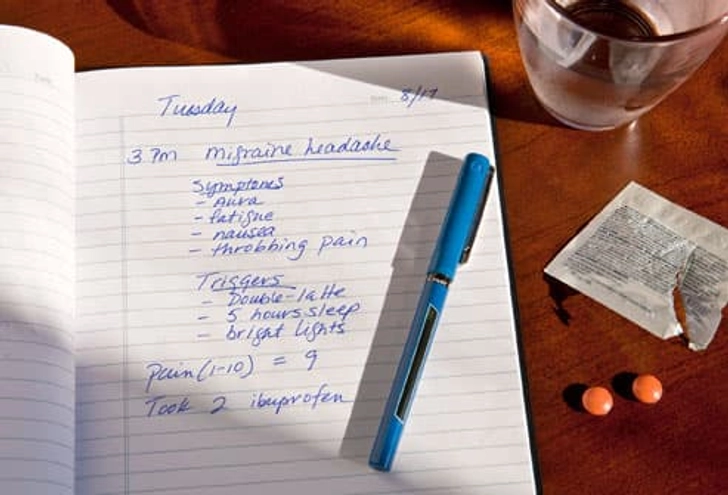 Tuesday 8/17
3 7m migraine headache
Symptoms
- Aura
- fatigue
- nausea
- throbbing pain
Triggers
- Double-latte
- 5 hours sleep
- bright lights
Pain (1-10) = 9
Took 2 ibuprofen